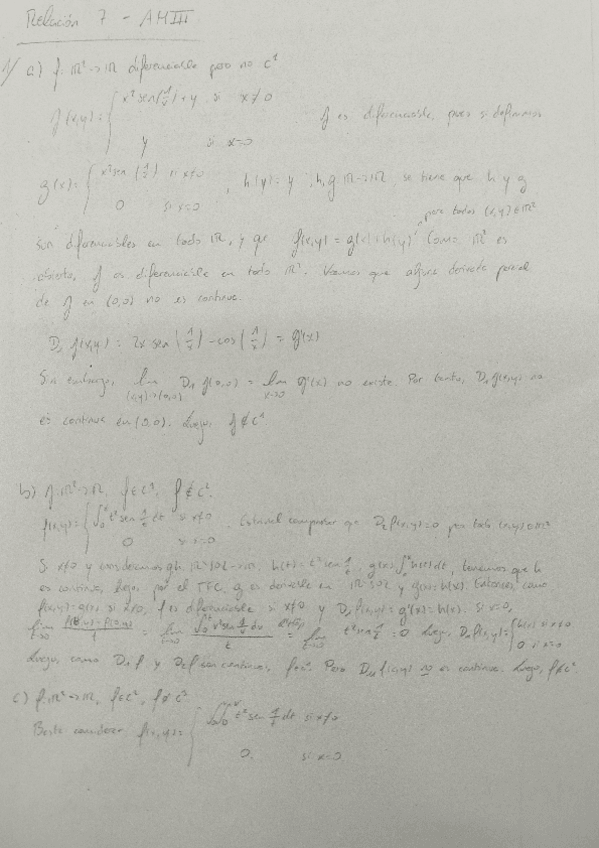 Relación 7 - AMIII
1/ a) f: ℝ²→ℝ diferenciable pero no C¹
f(x,y)= { x² sen(1/x)+y si x≠0
y si x=0
f es diferenciable, pues si definimos
g(x)= { x² sen(1/x) si x≠0
0 si x=0
, h(y)=y, h,g: ℝ→ℝ, se tiene que h y g
para todos (x,y)∈ℝ²
son diferenciables en todo ℝ, y que f(x,y)=g(x)+h(y). Como ℝ² es
abierto, f es diferenciable en todo ℝ². Veamos que alguna derivada parcial
de f en (0,0) no es continua.
D₁ f(x,y) = 2x sen(1/x) - cos(1/x) = g'(x)
Sin embargo, lim (x,y)→(0,0) D₁ f(0,0) = lim x→0 g'(x) no existe. Por tanto, D₁ f(x,y) no
es continua en (0,0). Luego, f∉C¹
b) f: ℝ²→ℝ, f∈C¹, f∉C².
f(x,y)= { ∫₀ˣ t² sen 1/t dt si x≠0
0 si x=0
comprobar que D₂f(x,y)=0 para todo (x,y)∈ℝ²
Si x≠0 y consideramos g,h: ℝ\{0}→ℝ, h(t)=t² sen 1/t, g(x)=∫₀ˣ h(t)dt, tenemos que h
es continua, luego, por el TFC, g es derivable en ℝ\{0} y g'(x)=h(x). Entonces, como
f(x,y)=g(x) si x≠0, f es diferenciable si x≠0 y D₁f(x,y)=g'(x)=h(x). Si x=0,
lim t→0 = lim t→0 = lim t→0 t² sen 1/t = 0. Luego, D₁f(x,y)= { h(x) si x≠0
0 si x=0
Luego, como D₁f y D₂f son continuas, f∈C¹. Pero D₁₁f(x,y) no es continua. Luego, f∉C².
c) f: ℝ²→ℝ, f∈C², f∉C³
Basta considerar f(x,y)= { ∫₀ t² sen 1/t dt si x≠0
0 si x=0